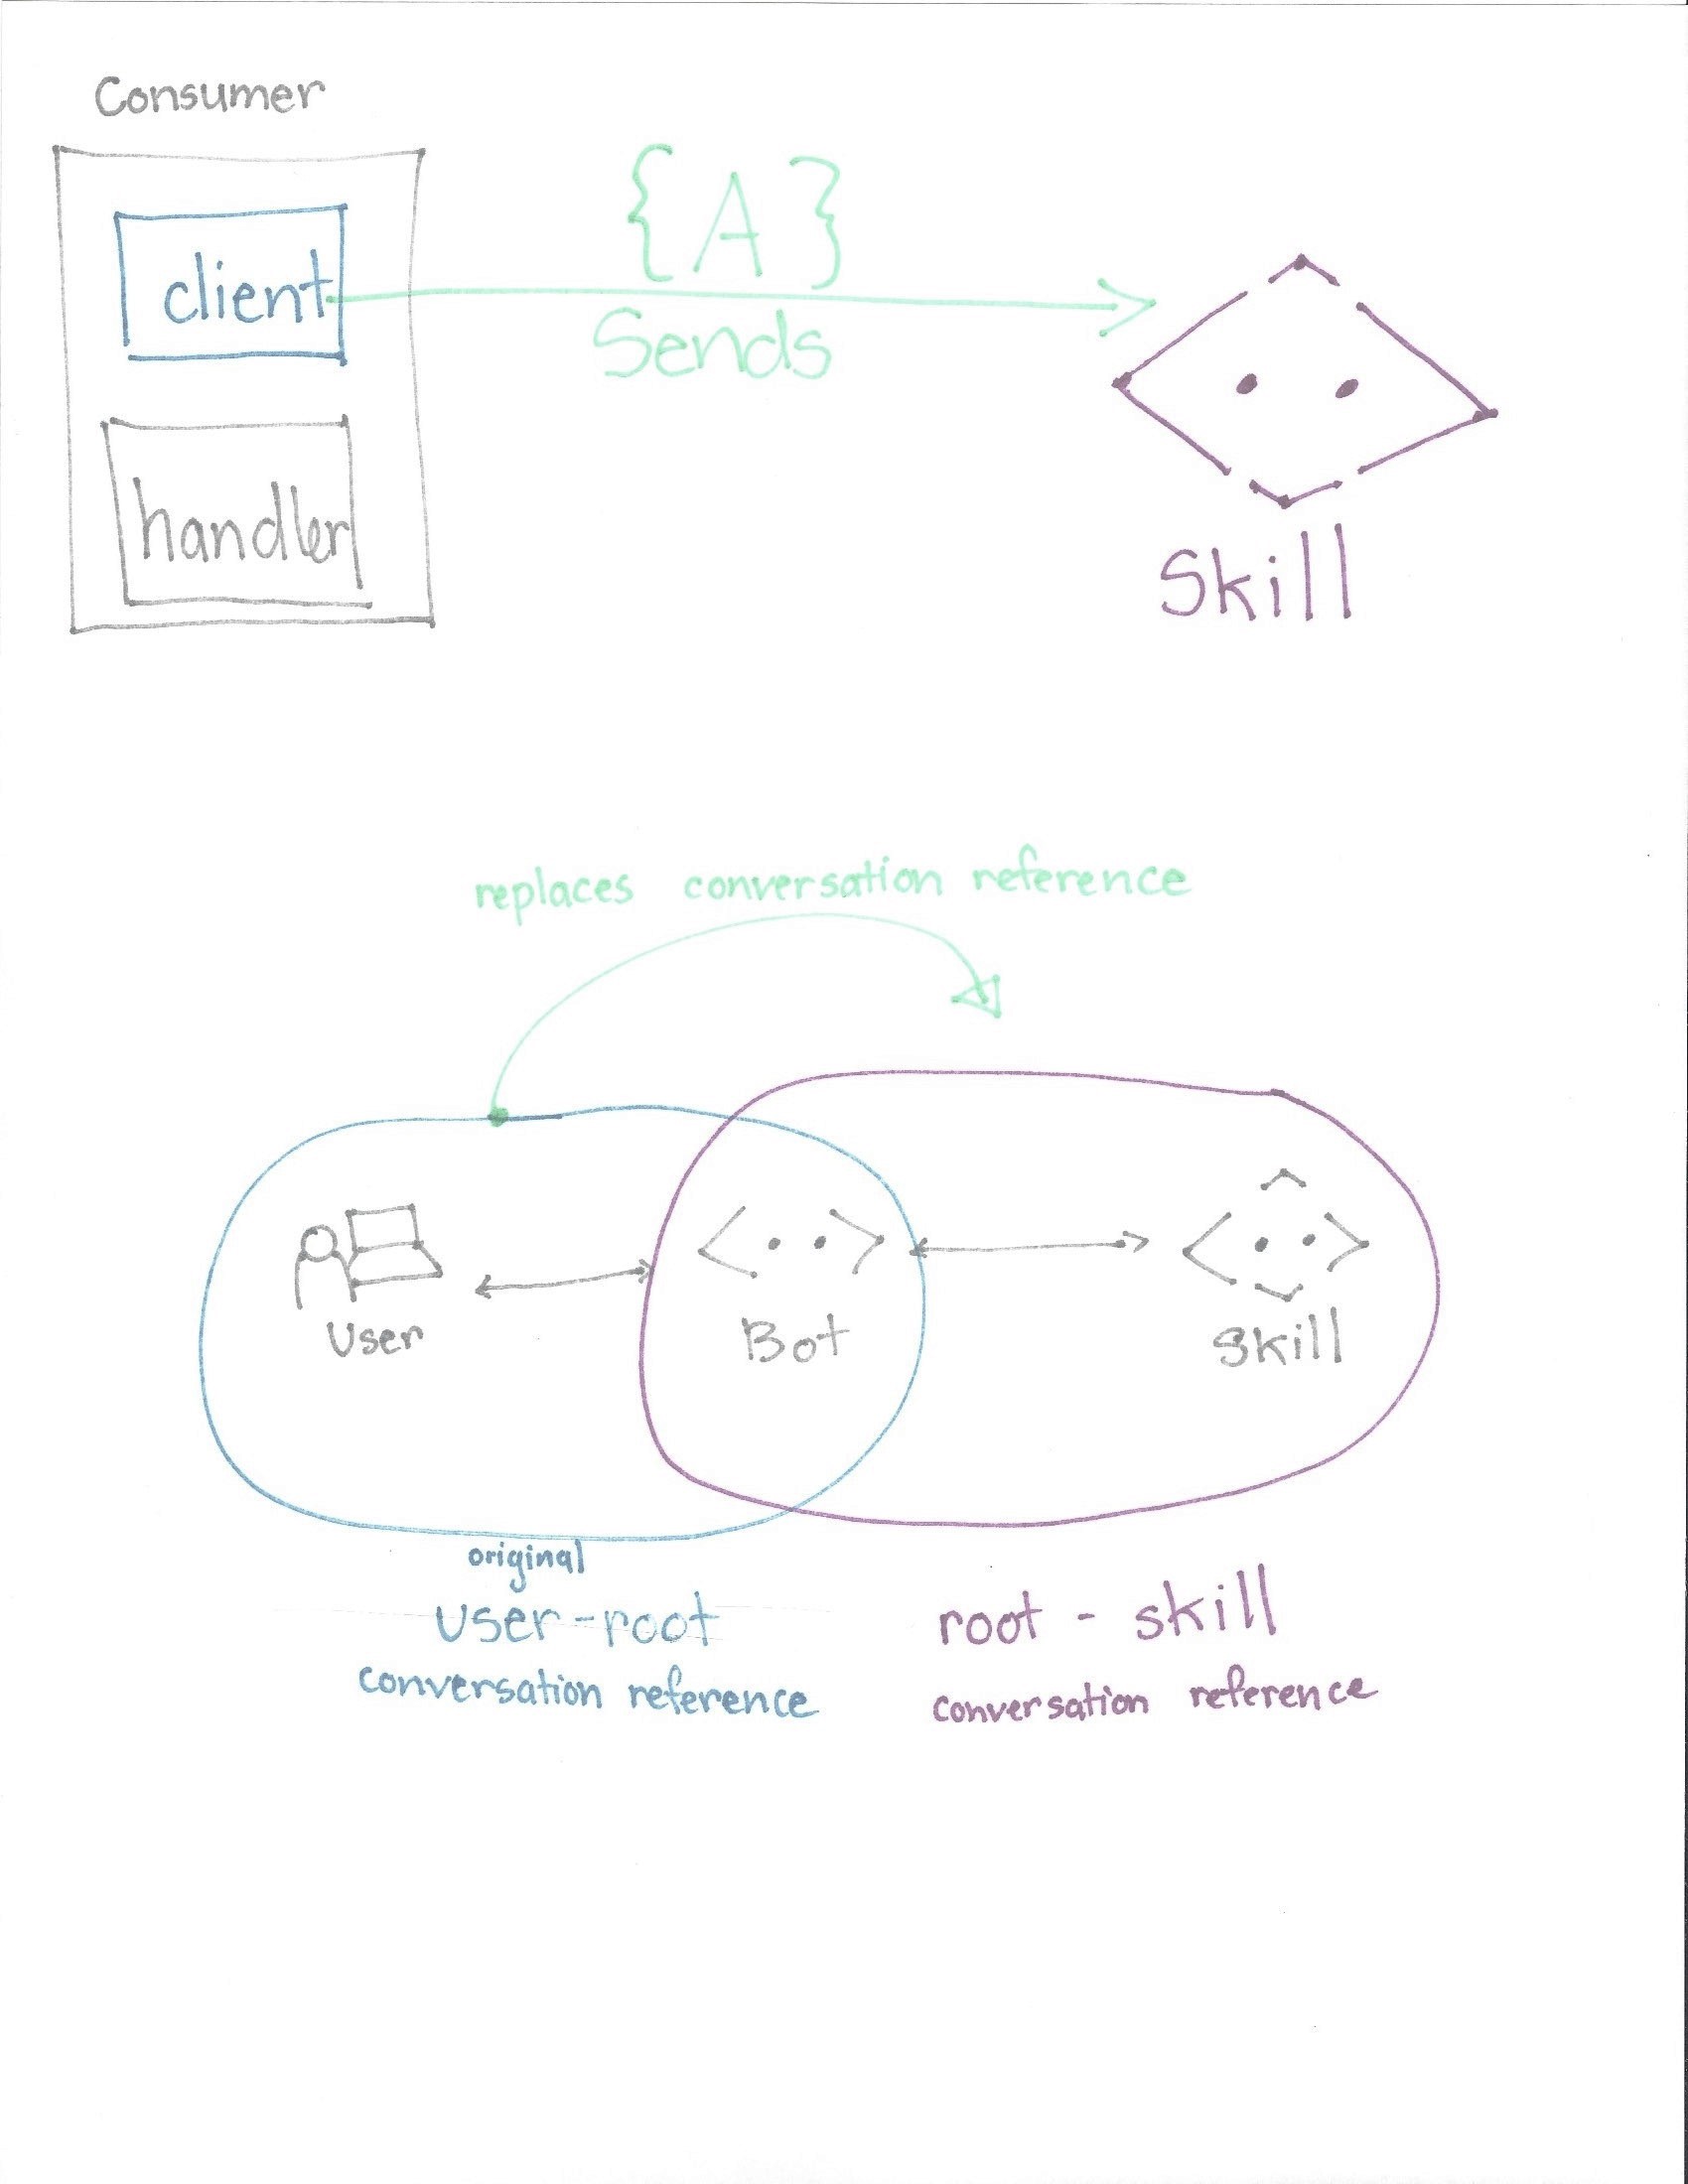 Consumer
{A}
client
Sends
handler
Skill
replaces conversation reference
User
Bot
Skill
original
user-root
conversation reference
root - skill
conversation reference